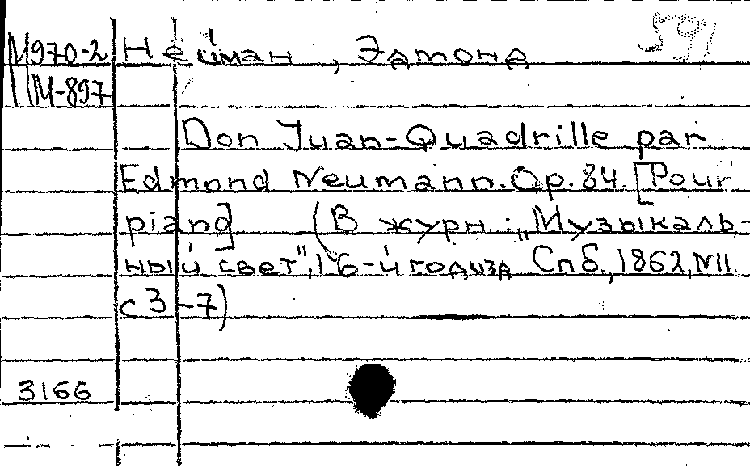 М970-2 Нейман, Эдмонд 591
IM-897
Don Juan-Quadrille par
Edmond Neumann. Op. 84. [Pour
piano] (В журн.: „Музыкаль-
ный свет", 16-й год изд. Спб., 1862, №11
с 3-7)
3166